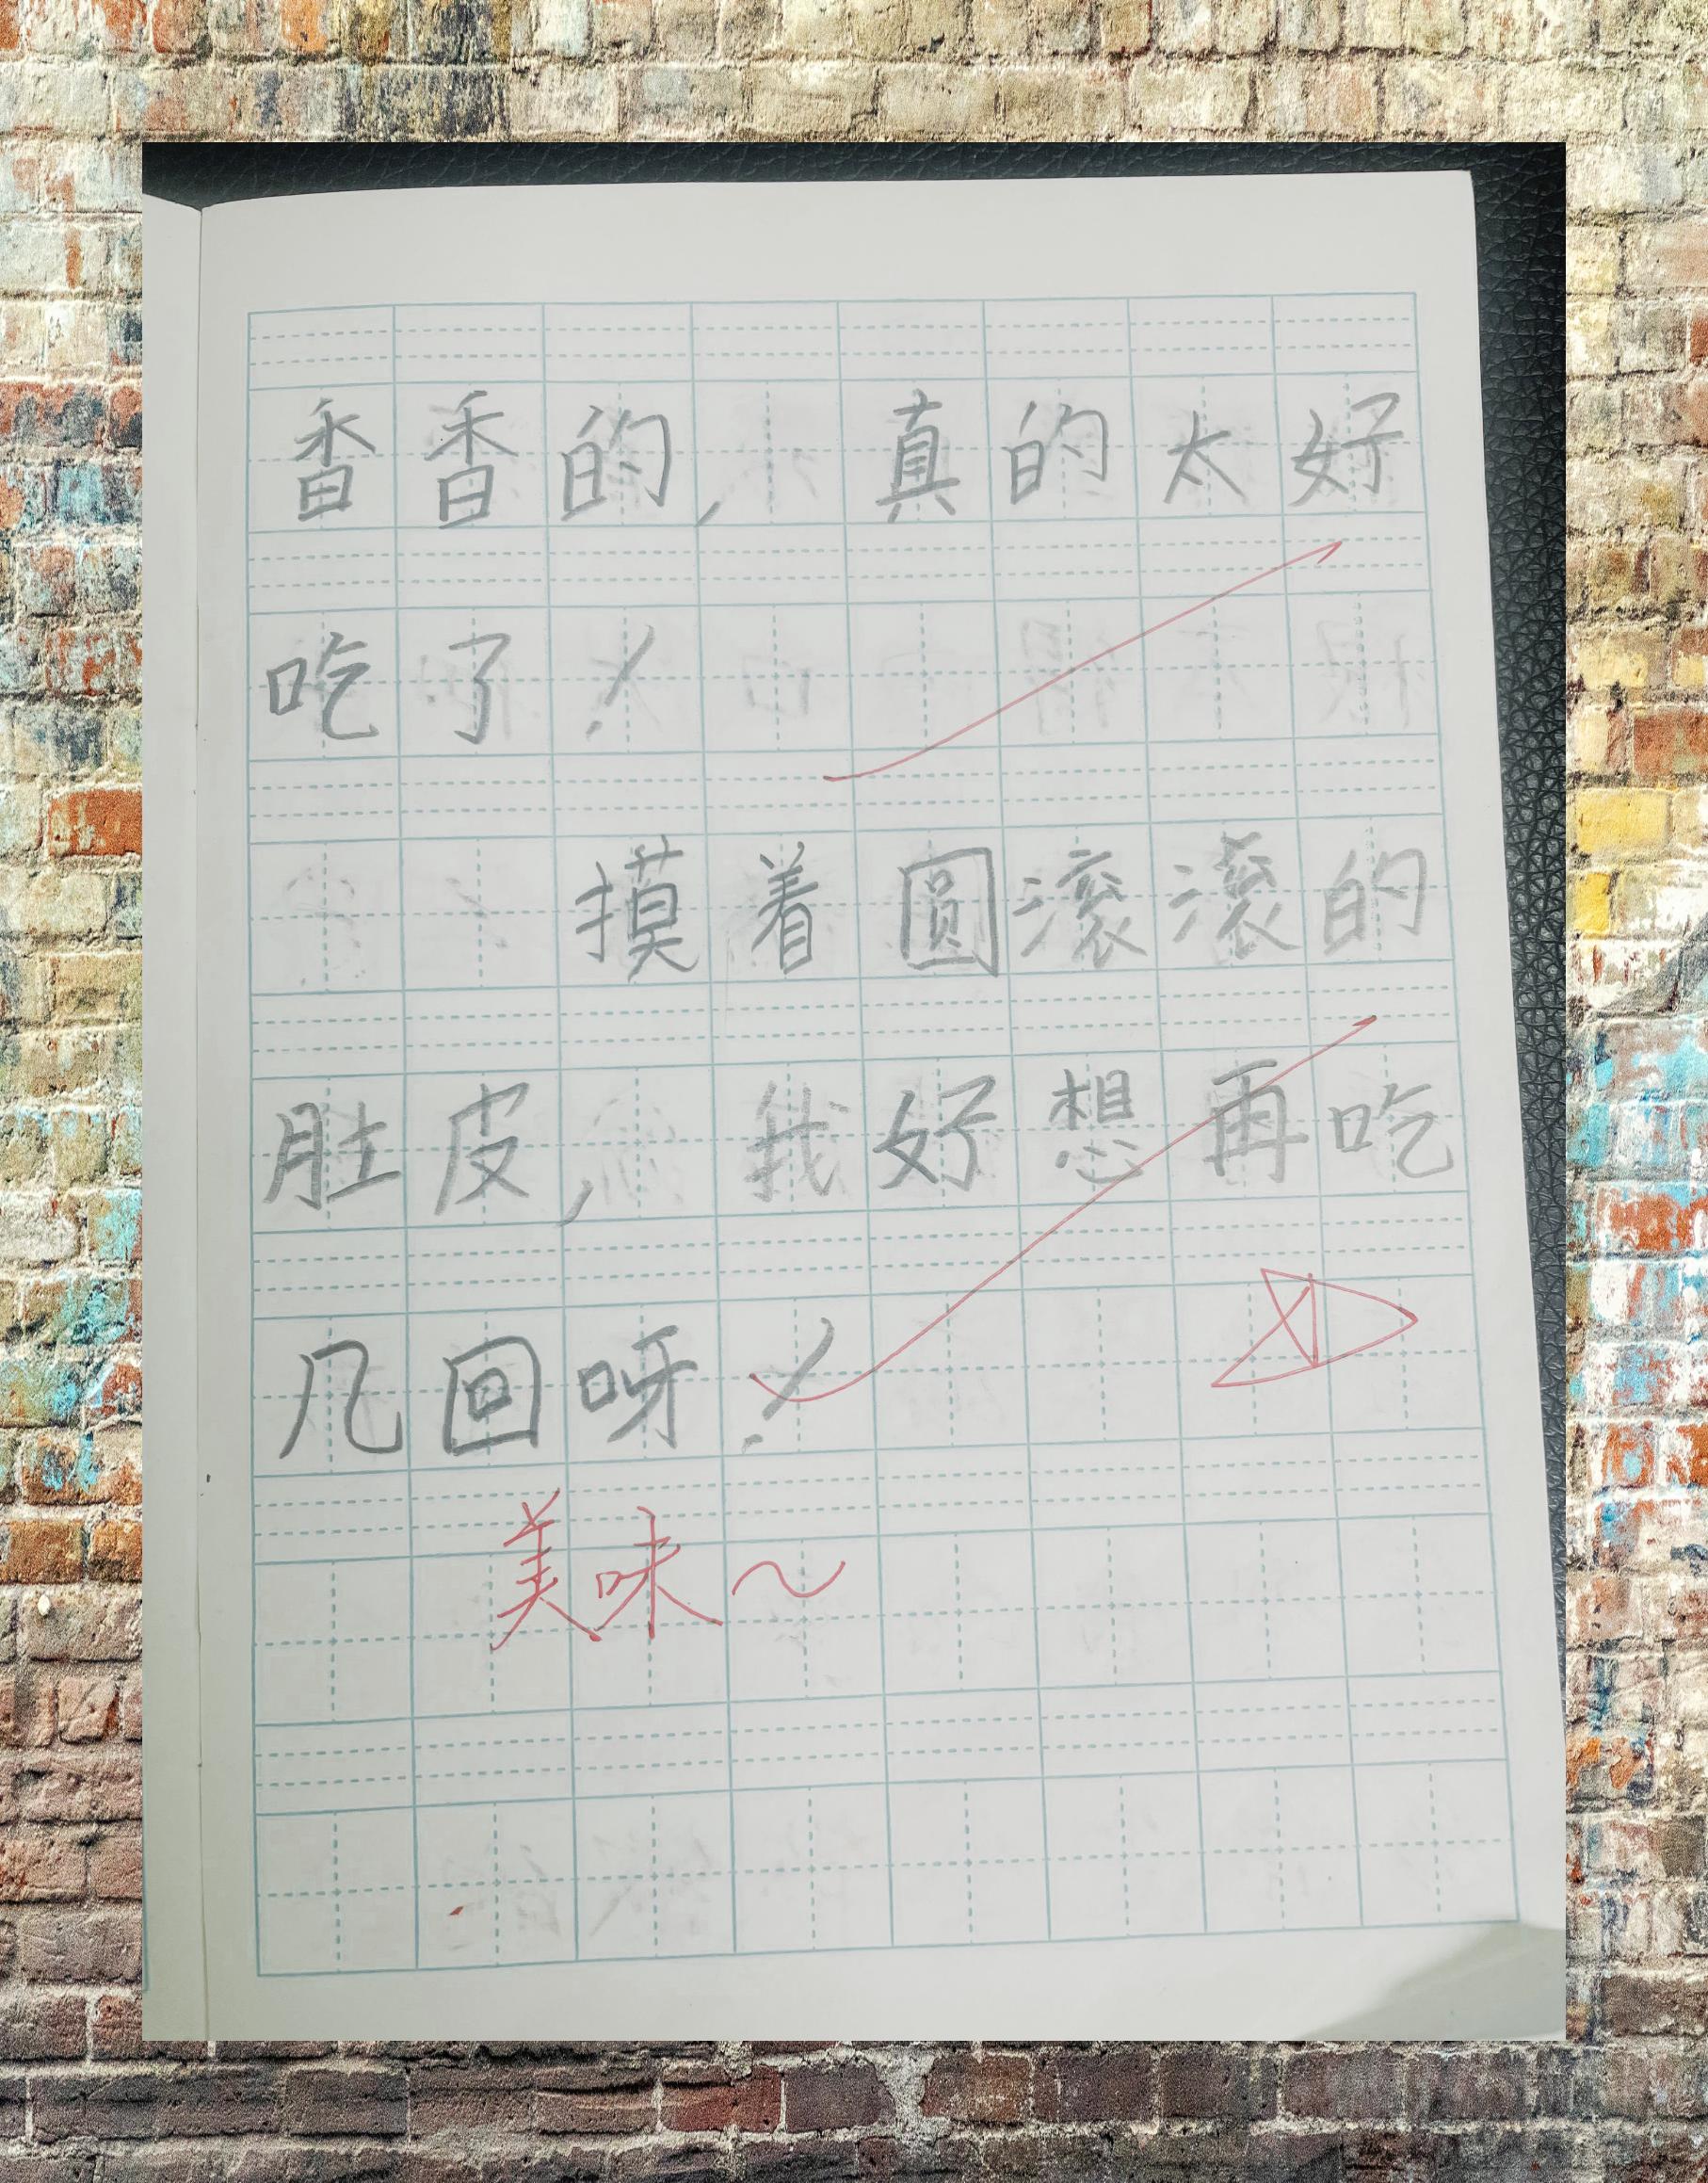 香香的，真的太好
吃了！
摸着圆滚滚的
肚皮，我好想再吃
几回呀！
美味～